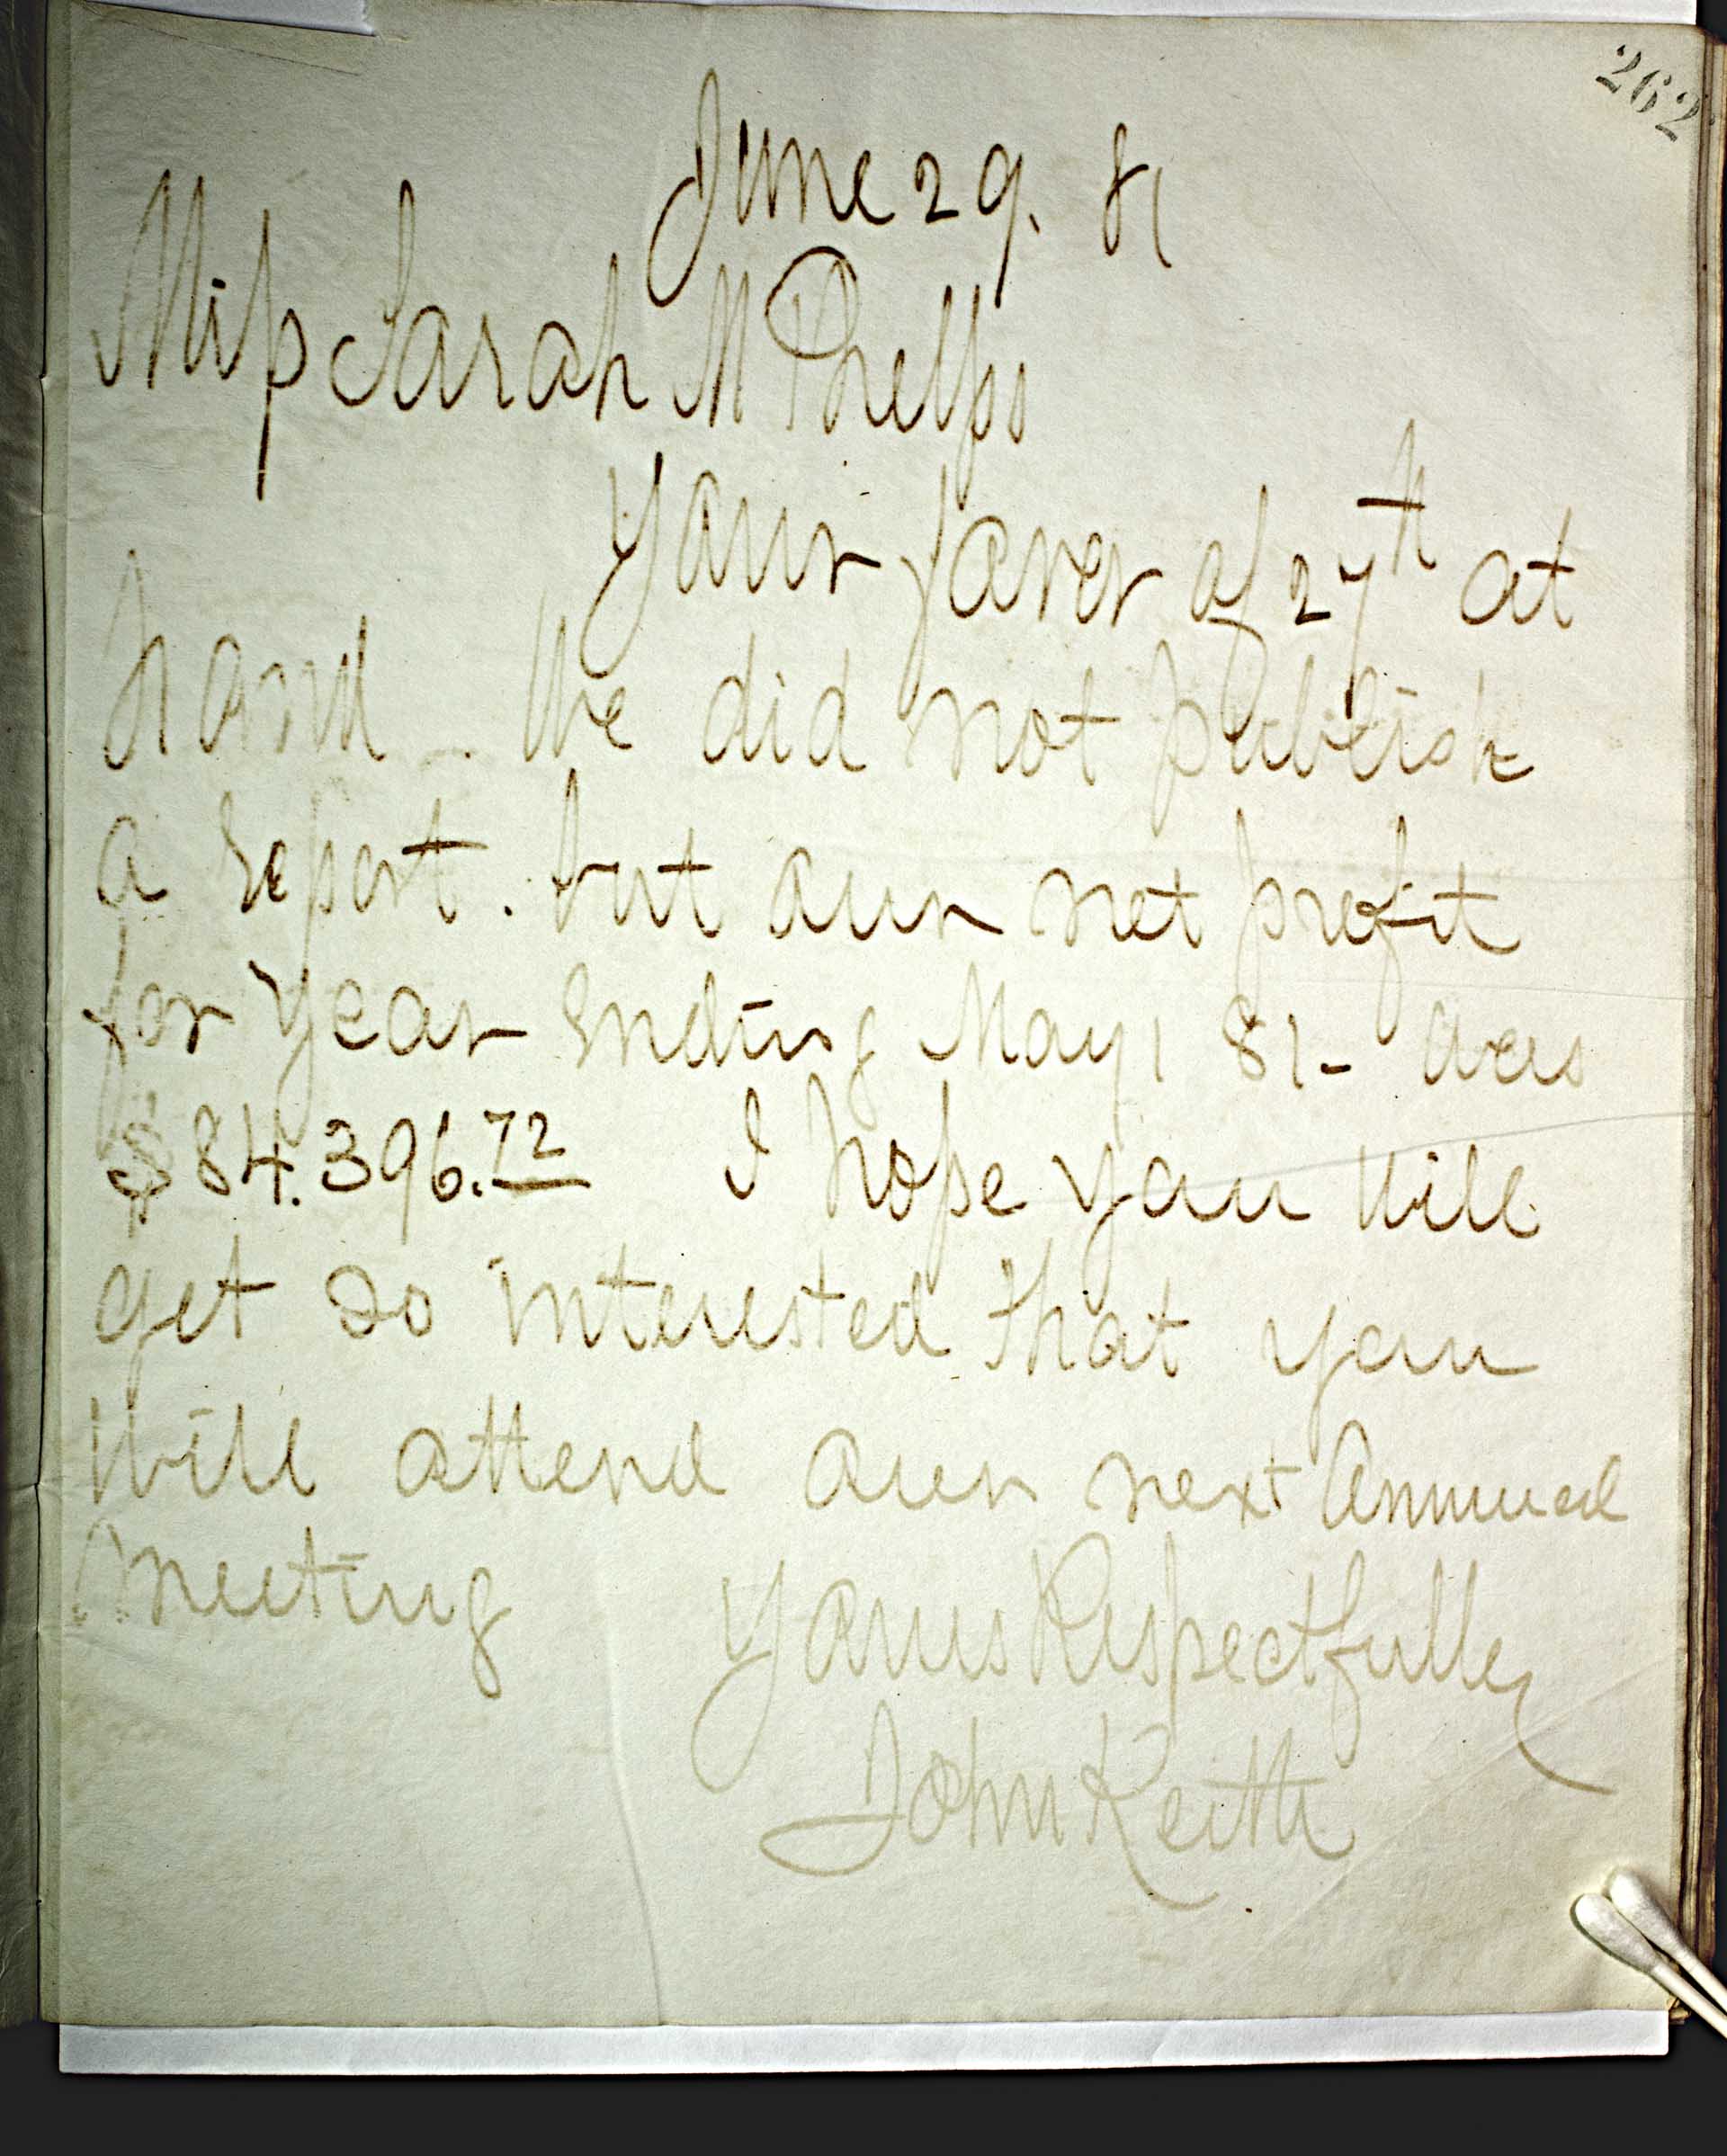 262
June 29. 81
Miss Sarah M Phelps
Your favor of 27th at
hand. We did not publish
a report. but our net profit
for year Ending May 1 81- was
$84.396.72 I hope you will
get so interested that you
will attend our next Annual
meeting Yours Respectfully
John Keith